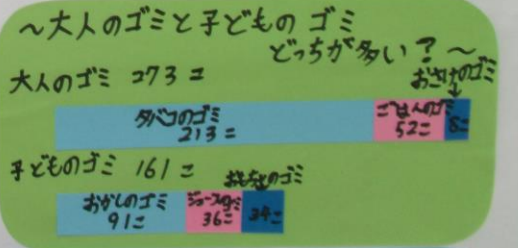 ～大人のゴミと子どものゴミ
どっちが多い？～
大人のゴミ 273こ
おさけのゴミ
タバコのゴミ
213こ
ごはんのゴミ
52こ
8こ
子どものゴミ 161こ
おもちゃのゴミ
おかしのゴミ
91こ
ジュースのゴミ
36こ
34こ